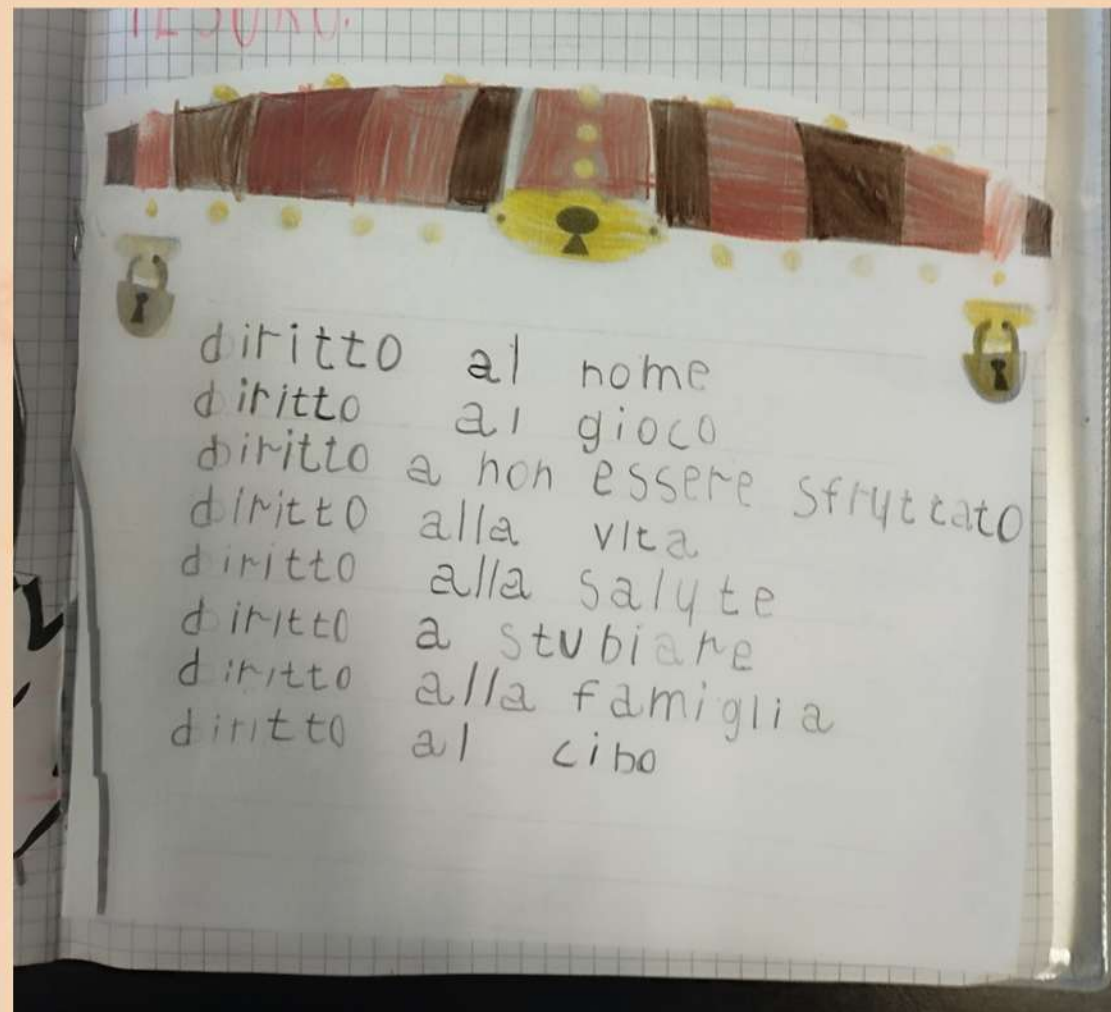 TESORO.
diritto al nome
diritto al gioco
diritto a non essere sfruttato
diritto alla vita
diritto alla salute
diritto a stubiare
diritto alla famiglia
diritto al cibo